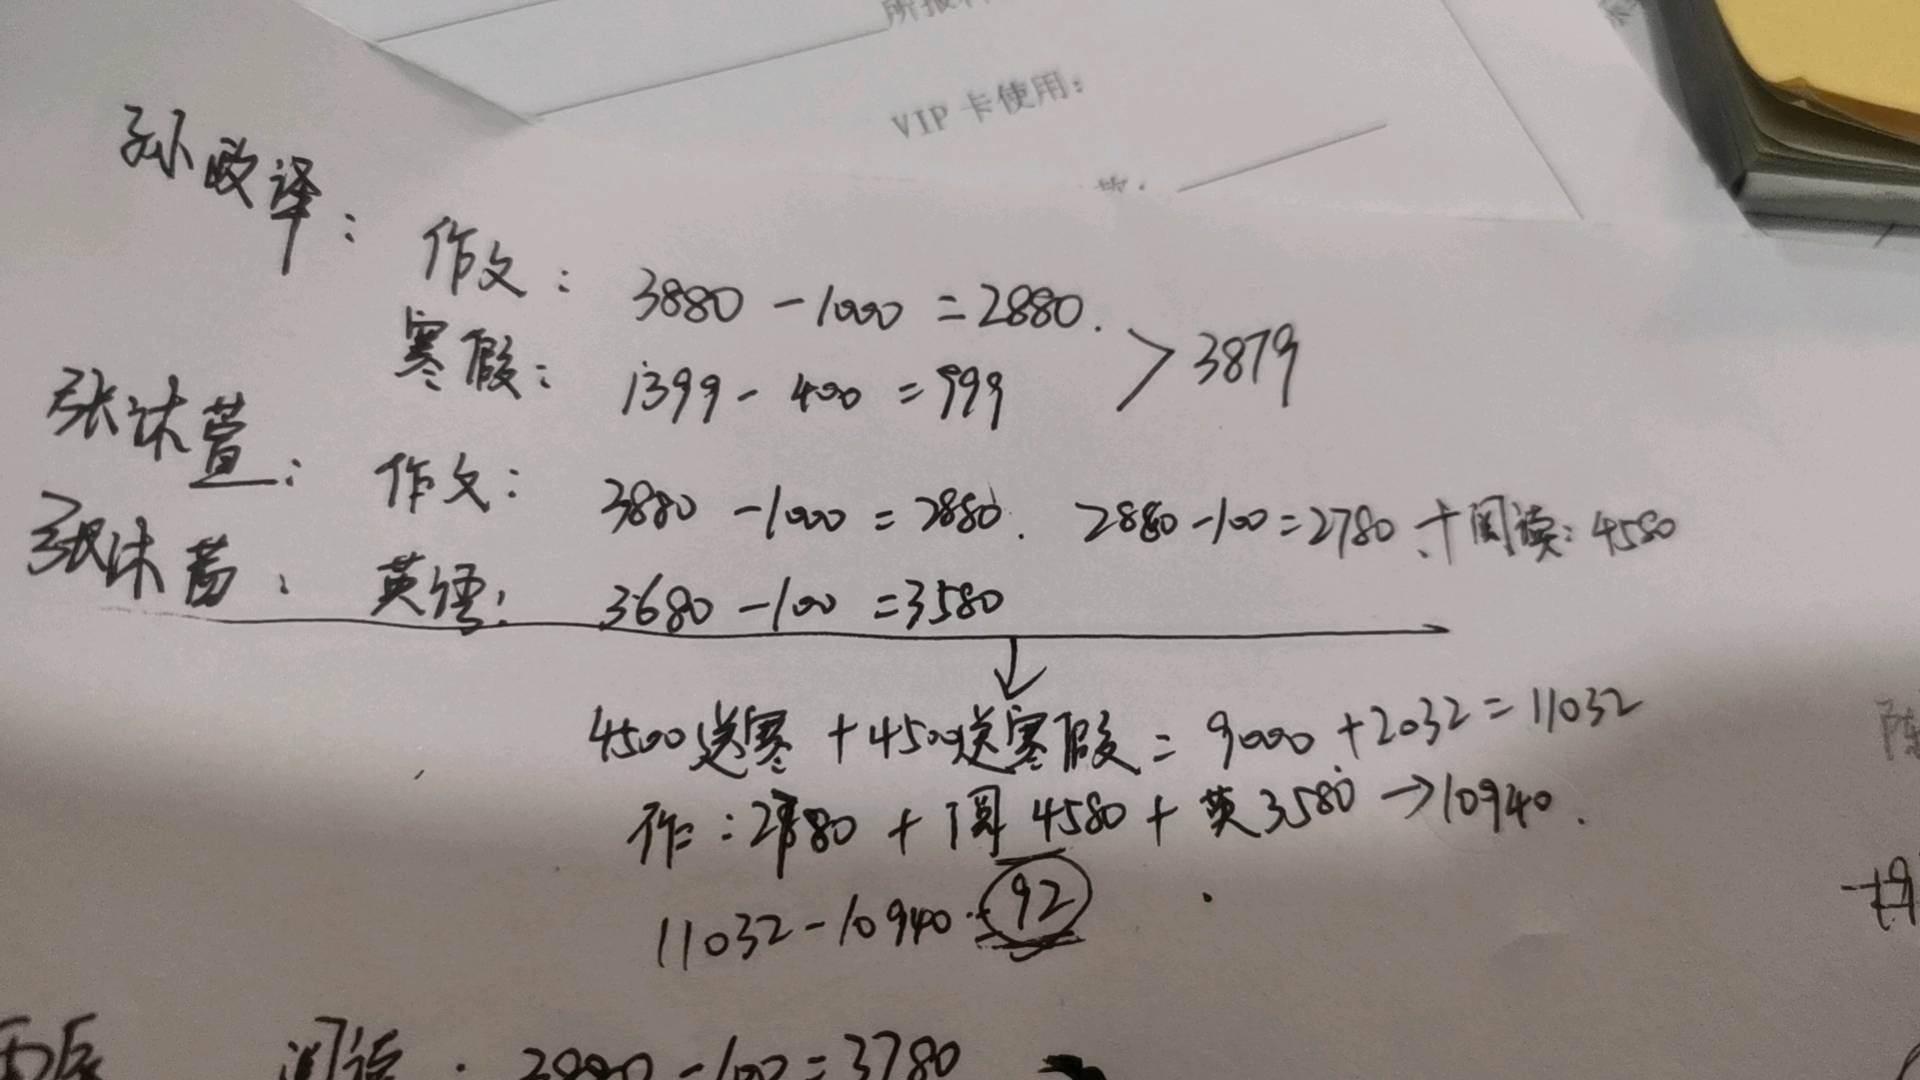 VIP 卡使用:
孙政译:
作文: 3880 - 1000 = 2880.
寒假: 1399 - 400 = 999 > 3879
张沐萱: 作文: 3880 - 1000 = 2880. 2880 - 100 = 2780 + 阅读: 4580
张沐茜: 英语: 3680 - 100 = 3580
4500送寒 + 4500送寒假 = 9000 + 2032 = 11032
作: 2780 + 阅 4580 + 英 3580 → 10940.
11032 - 10940 = 92
阅读: 3880 - 100 = 3780